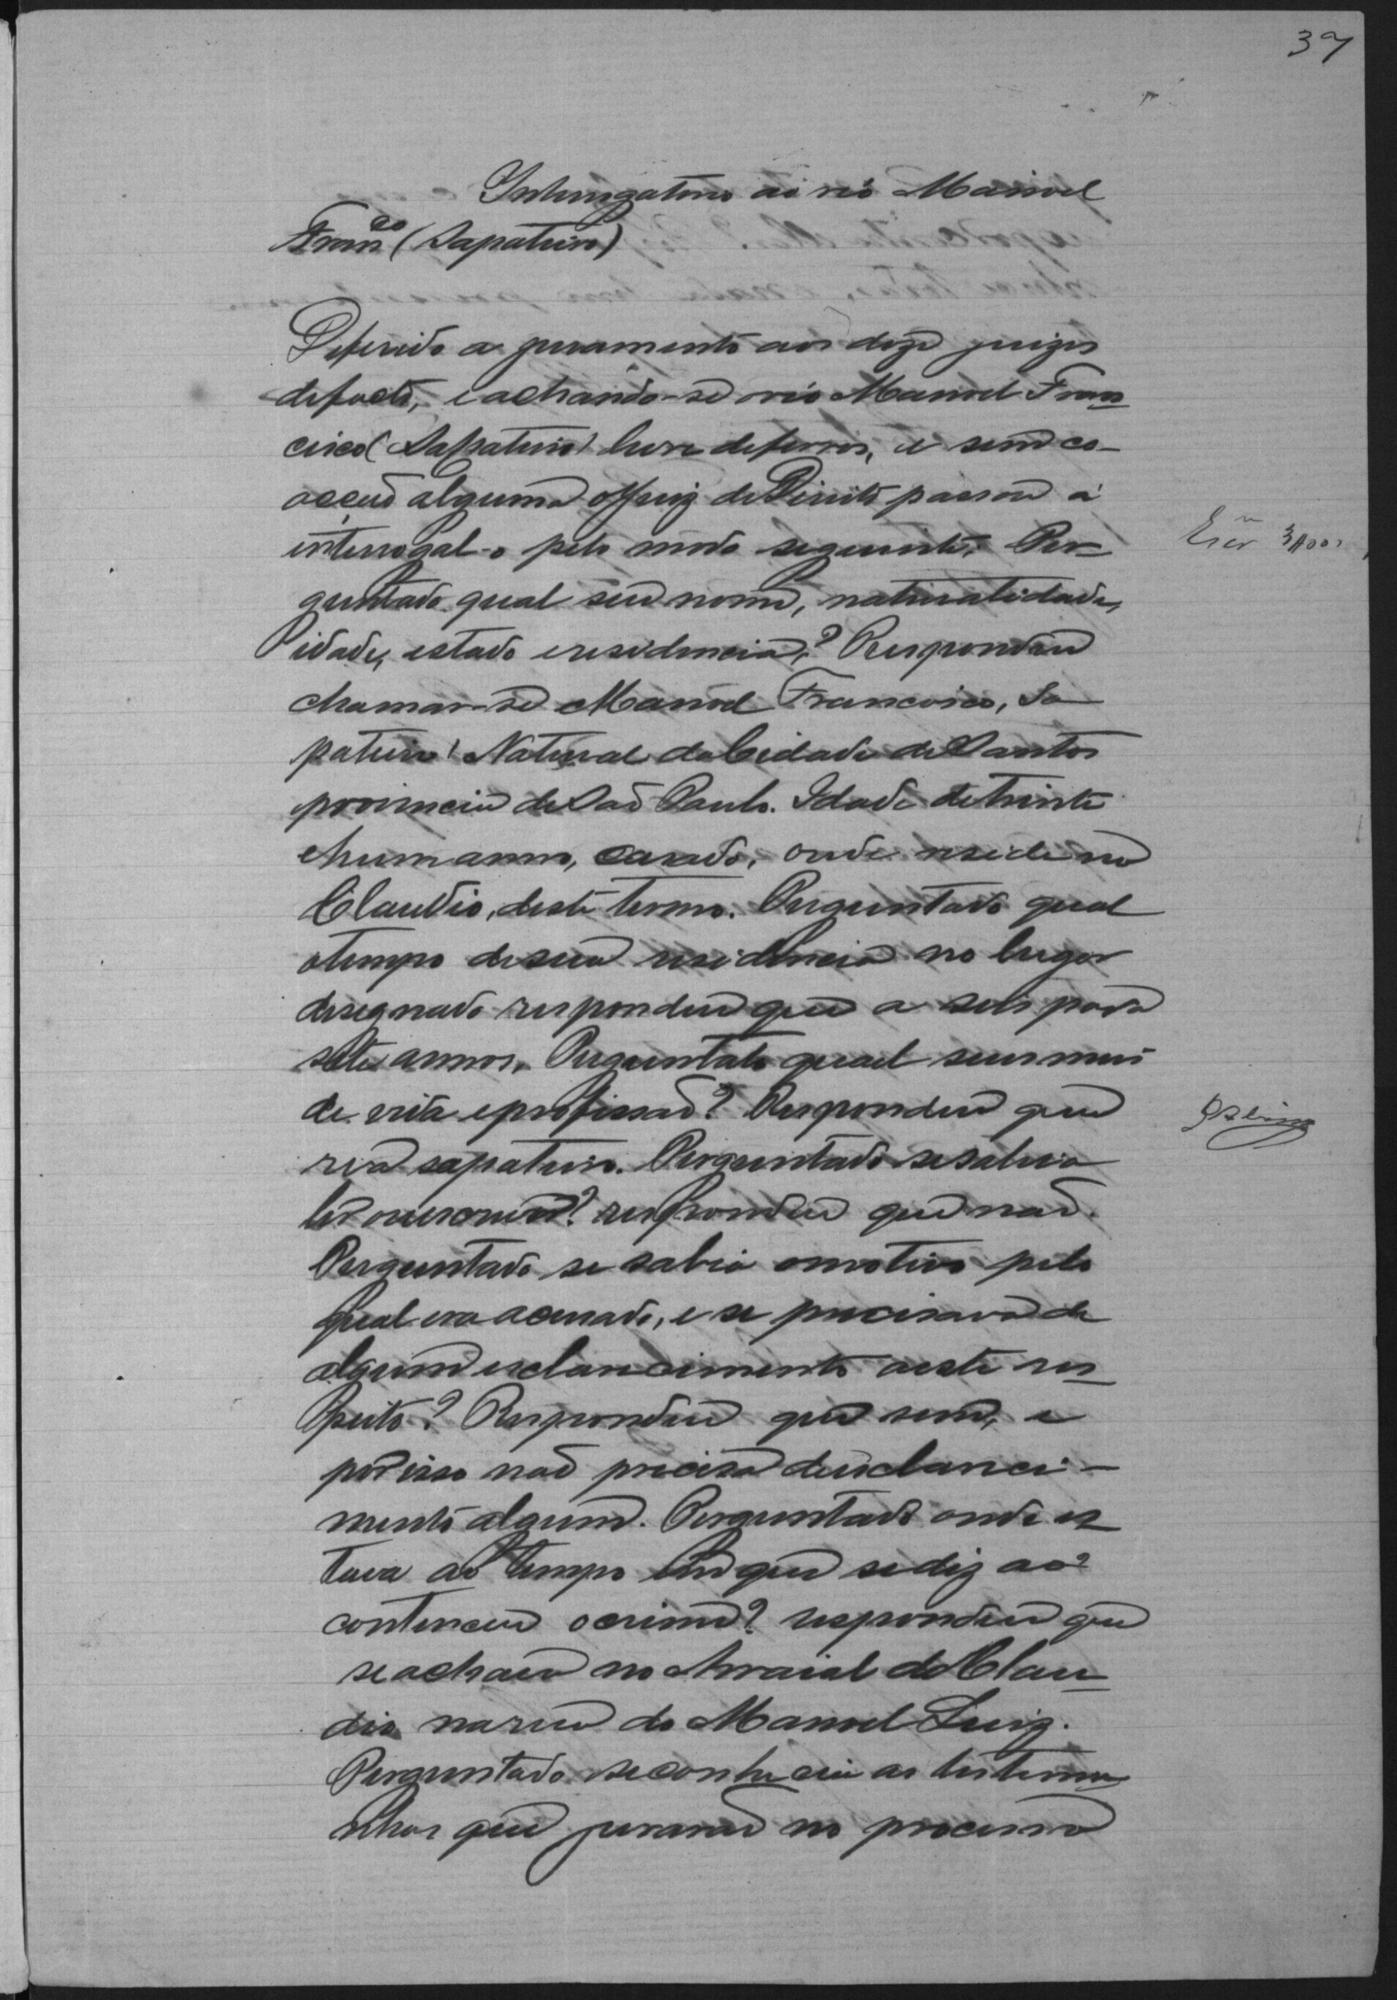 37
Interrogatorio ao reo Manoel
Franco (Sapateiro)
Deferido a juramento aos doze juizes
defacto, e achando-se oreo Manoel Fran
cisco (Sapateiro) livre deferros, e sem co-
acção alguma o Juiz de Direito passou á
interrogal-o pelo modo seguinte. Per-
guntado qual seu nome, naturalidade,
idade, estado eresidencia? Respondeu
chamar-se Manoel Francisco, Sa
pateiro Natural da Cidade de Santos
provincia de São Paulo. Idade detrinta
ehum annos, casado, onde reside no
Claudio, deste termo. Perguntado qual
otempo desua residencia no lugar
designado respondeu que a seis para
sete annos. Perguntado quael seus meis
de vida eprofissão? Respondeu que
era sapateiro. Perguntado sesabia
ler ou escrever? respondeu que não.
Perguntado se sabia omotivo pelo
qual era acusado, e se precisava de
algum esclarecimento aeste res
peito? Respondeu que sim, e
porisso não precisa deesclareci-
mento algum. Perguntado onde es
tava ao tempo emque sediz ao
conteceu ocrime? respondeu que
seachava no Arraial do Clau
dio narua do Manoel Luiz.
Perguntado seconhecia as testemu
nhas que jurarão no processo